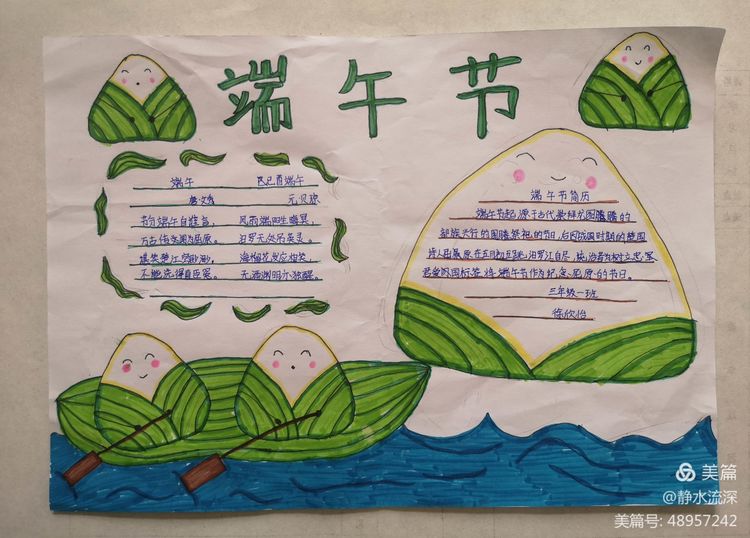 端午节
端午 己酉端午
唐·文秀 元·贝琼
节分端午自谁言， 风雨端阳生晦冥，
万古传闻为屈原。 汨罗无处吊英灵。
堪笑楚江空渺渺， 海榴花发应相笑，
不能洗得直臣冤。 无酒渊明亦独醒。
端午节简历
端午节起源于古代崇拜龙图腾的
部族举行的图腾祭祀的节日，
诗人屈原在五月初五跳汨罗江自尽，统治者为树立忠
君爱国标签将端午节作为纪念屈原的节日。
三年级一班
徐欣怡
美篇
@静水流深
美篇号: 48957242